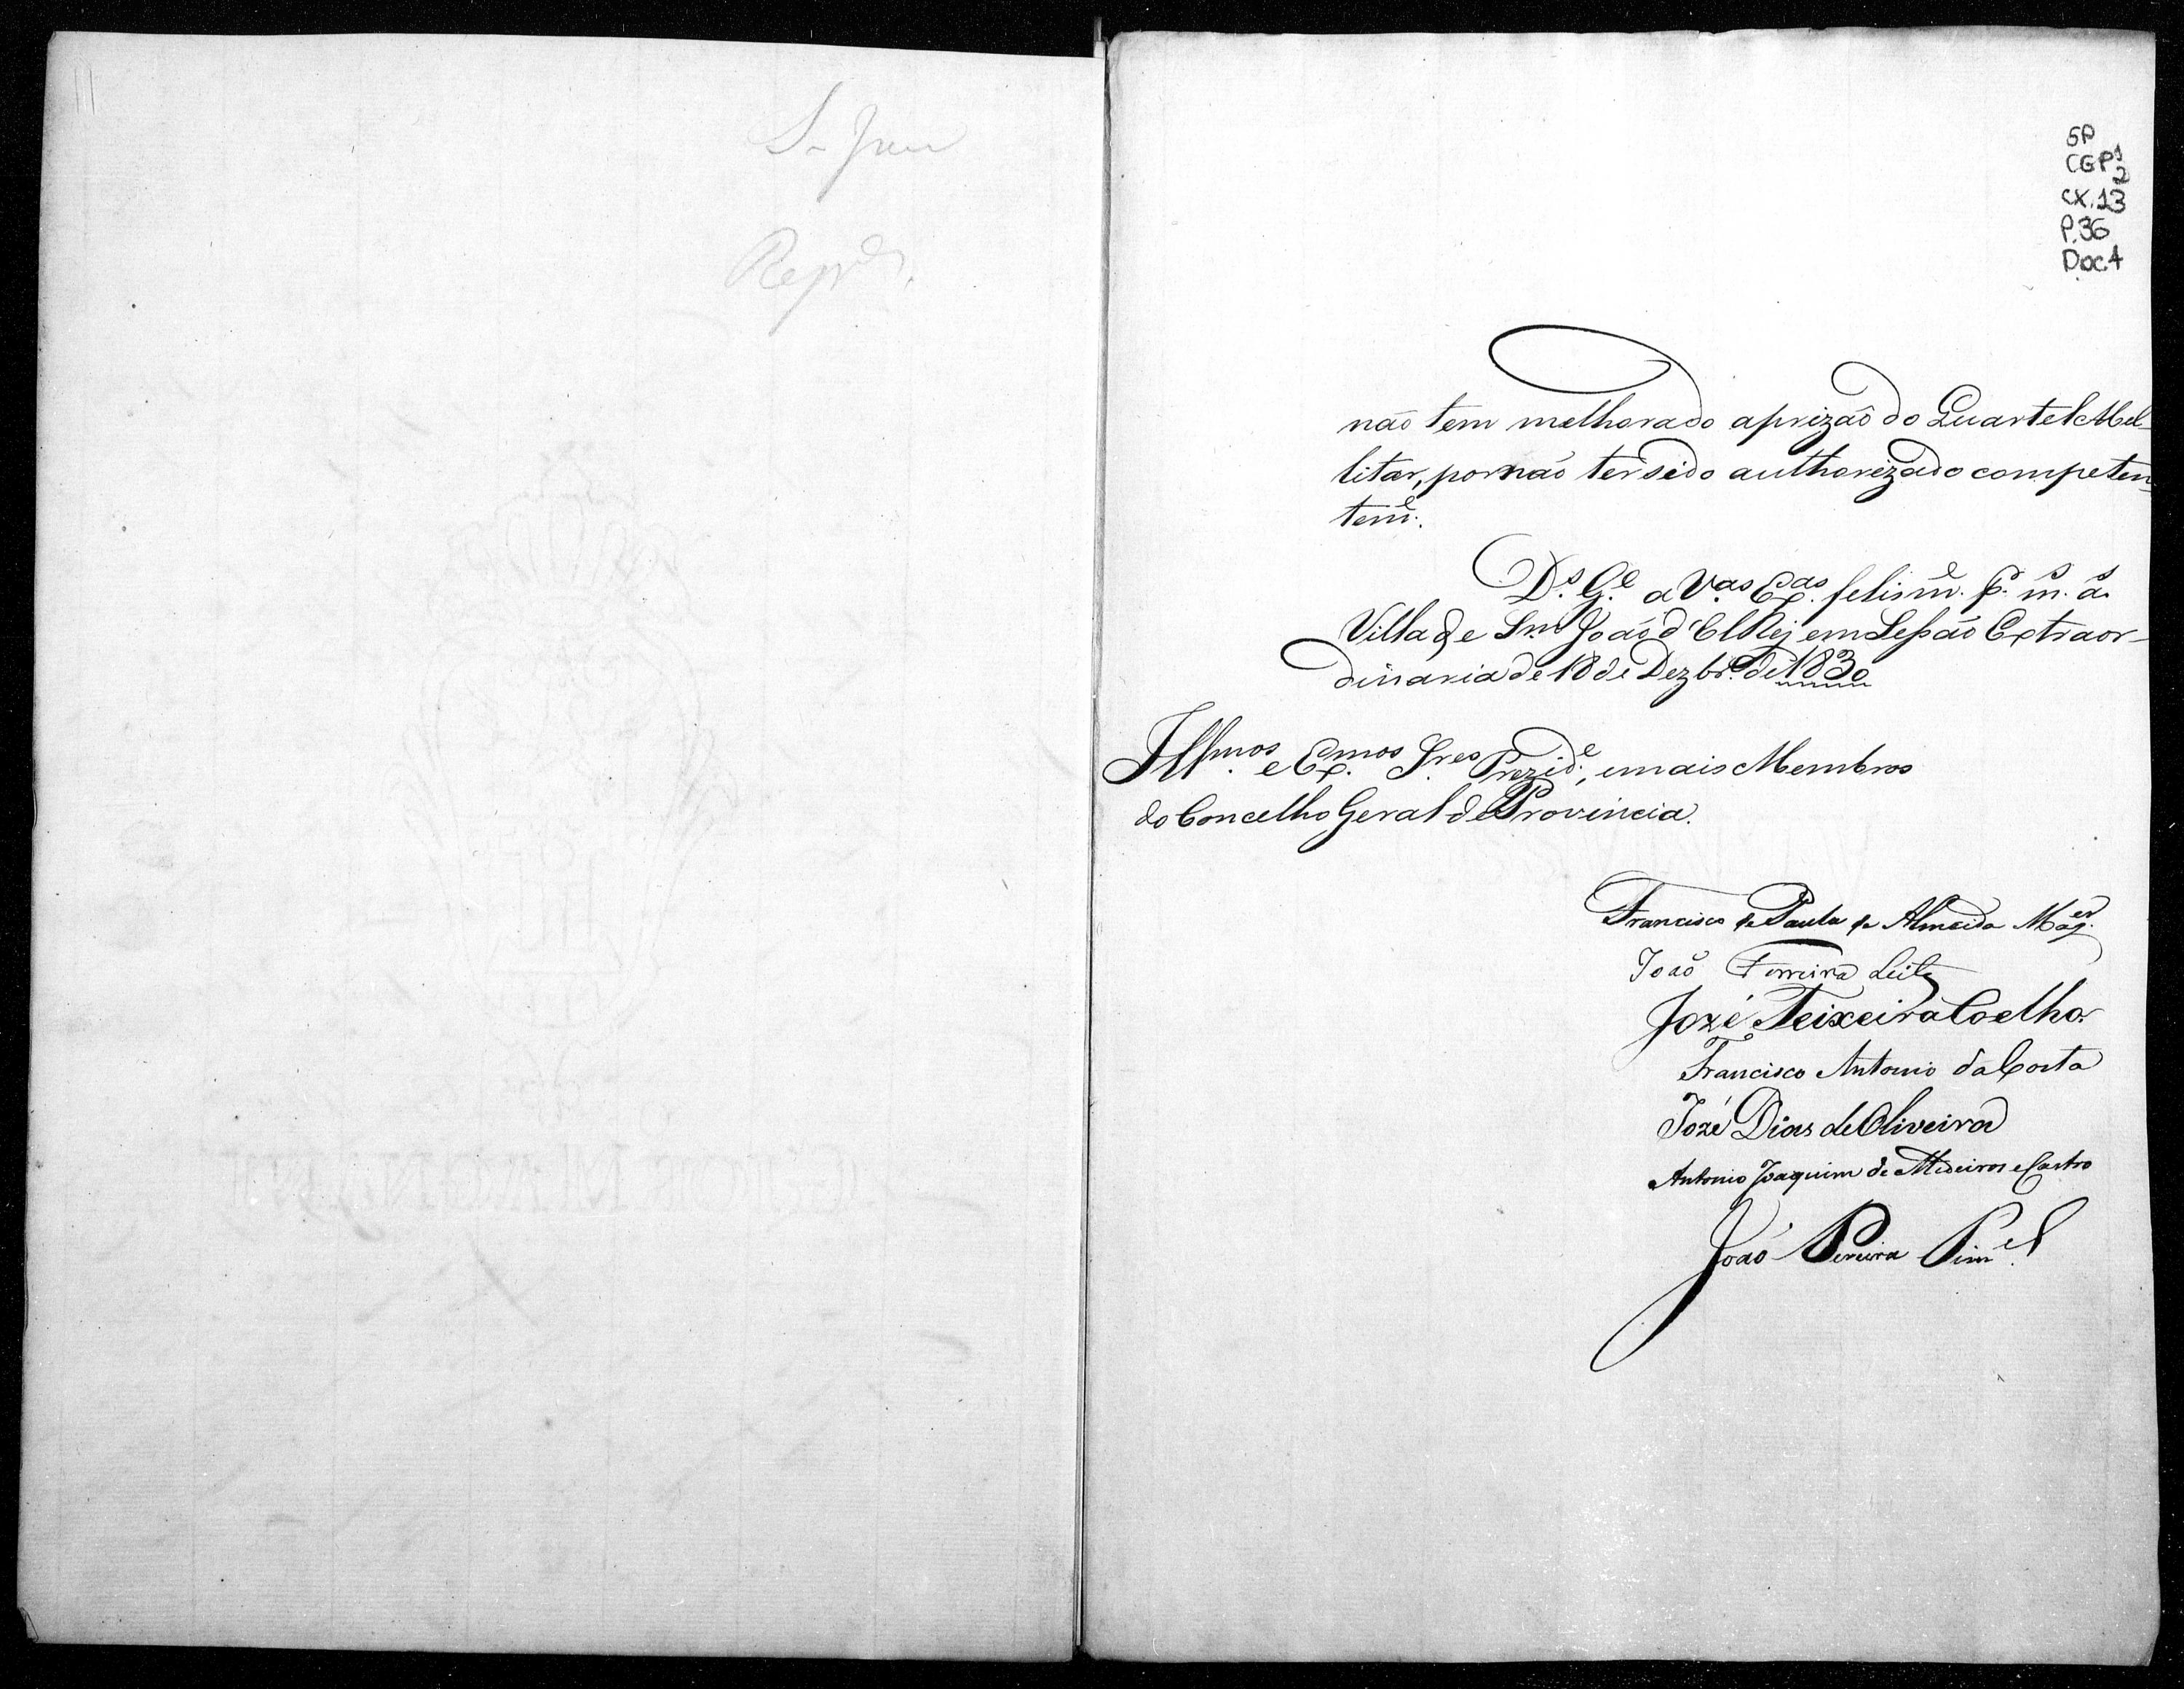 S. Joao
SP
CGP 1
2
CX.13
P.36
Doc.4
não tem melhorado aprizaõ do Quartel Mel-
litar, pornaõ tersido authorizado competen-
tem.e
D.s G.e a V.as Ex.as felism.e p.r m.s a.s
Villa de Sm João d'ElRej em Sessaõ Extraor-
dinaria de 18 de Dezbr.o de 1830
Ill.mos e Ex.mos Sr.es Prezid.e, emais Membros
do Concelho Geral de Provincia.
Francisco de Paula de Almeida Mag.es
Joaõ Ferreira Leite
Jozé Teixeira Coelho
Francisco Antonio da Costa
Jozé Dias de Oliveira
Antonio Joaquim de Medeiros e Castro
Joaõ Pereira Pim.el